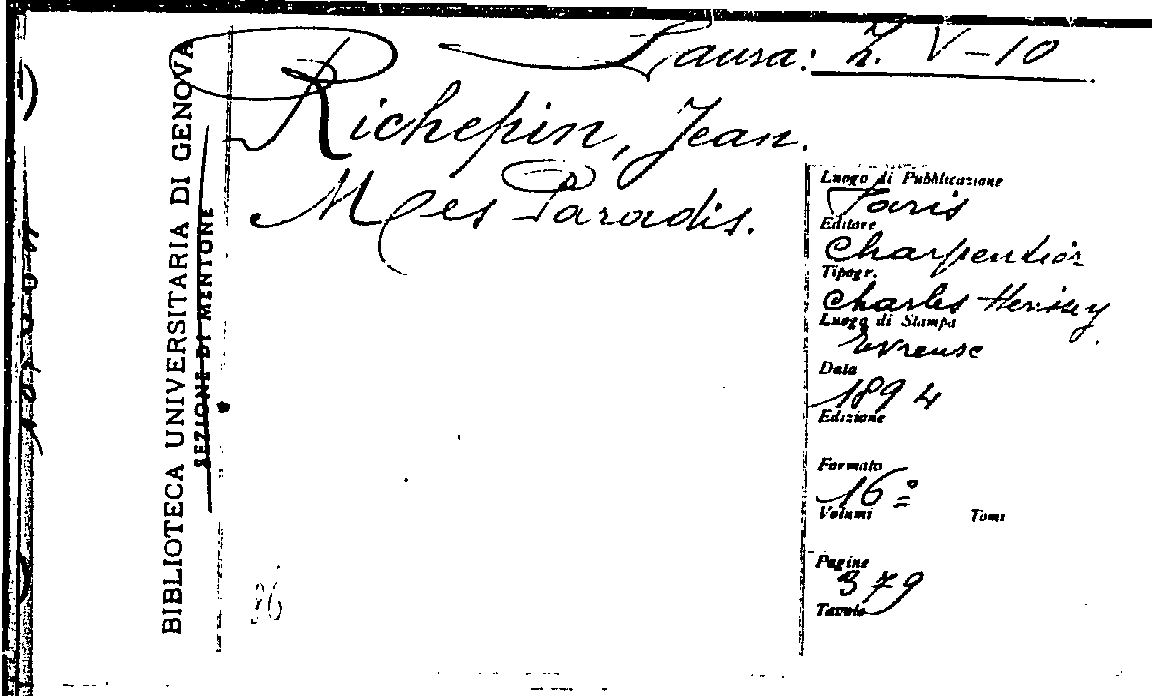 Laura: Z. V-10
Richepin, Jean.
Mes Paradis.
BIBLIOTECA UNIVERSITARIA DI GENOVA
SEZIONE DI MENTONE
Luogo di Pubblicazione
Paris
Editore
Charpentier
Tipogr.
Charles Hérissey
Luogo di Stampa
Evreux
Data
1894
Edizione
Formato
16º
Volumi Tomi
Pagine
379
Tavole